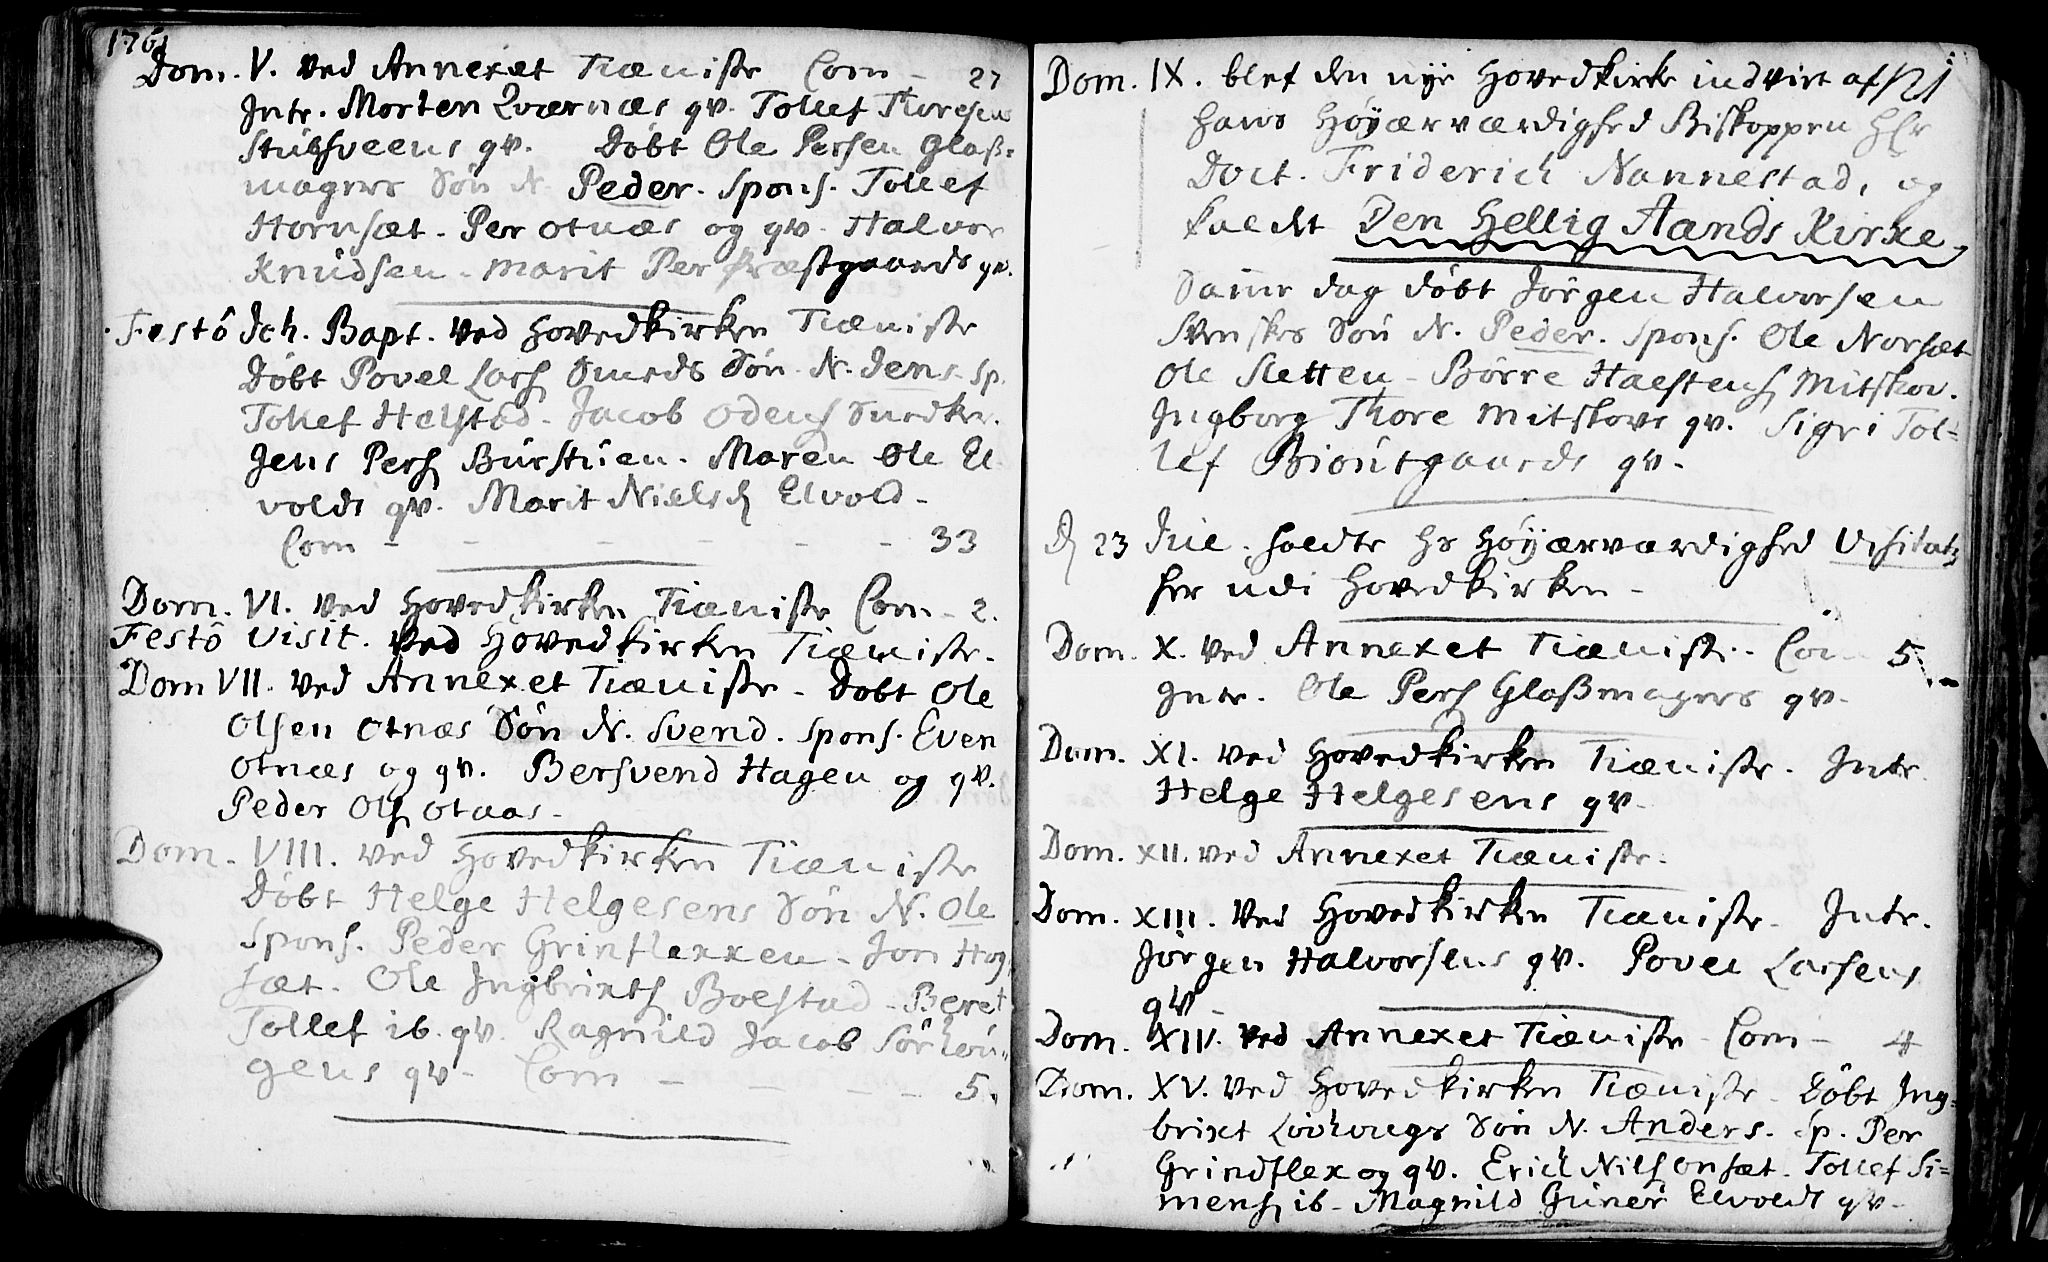 1761
Dom. V. ved Annexet Tieniste Com - 27
Intr. Morten Qværnæs qv. Tollef Thoresens
Stubsveens qv. Döbt Ole Persen Glaß-
magers Sön N. Peder. Spons. Tollef
Hornsæt. Per Otnæs og qv. Halvor
Knudsen. Marit Per Præstgaards qv.
Festô Joh. Bapt. ved Hovedkirken Tieniste
Döbt Povel Lars Smeds Sön N. Jens. Sp.
Tollef Helstad. Jacob Odens Snedker.
Jens Pers Burstuen. Maren Ole El
volds qv. Marit Niels Elvold -
Com - - - - - - 33
Dom. VI. ved Hovedkirken Tieniste Com - 2.
Festô Visit. ved Hovedkirken Tieniste.
Dom VII. ved Annexet Tieniste - Döbt Ole
Olsen Otnæs Sön N. Svend. Spons. Even
Otnæs og qv. Bersvend Hagen og qv.
Peder Ols Otnæs.
Dom. VIII. ved Hovedkirken Tieniste
Döbt Helge Helgesens Sön N. Ole
Spons. Peder Grinflexxen - Jon Hog
sæt. Ole Ingbrixts Bolstad - Beret
Tollef ib. qv. Ragnild Jacob
gens qv - Com - - - - 5.
Dom. IX. blef den nye Hovedkirke indviet af
Hans Höyærværdighed Biskoppen Hr
Doct. Friderich Nannestad, og
kaldt Den Hellig Aands Kirke.
Samme dag döbt Jörgen Halvorsen
Svenskes Sön N. Peder. Spons. Ole Norsæt
Ole Sletten - Börre Halstens Mitskov.
Ingborg Thore Mitskovs qv. Sigri Tol-
lef Biöutgaards qv.
D 23 Jul. holdte Hs Höyærværdighed Visitatz
her udi Hovedkirken -
Dom. X. ved Annexet Tieniste. Com - 5.
Intr. Ole Pers Glaßmagers qv.
Dom. XI. ved Hovedkirken Tieniste. Intr.
Helge Helgesens qv.
Dom. XII. ved Annexet Tieniste.
Dom. XIII. ved Hovedkirken Tieniste. Intr.
Jörgen Halvorsens qv. Povel Larsens
qv -
Dom. XIV. ved Annexet Tieniste - Com - 4
Dom. XV. ved Hovedkirken Tieniste - Döbt Ing-
brixt Sön N. Anders. Sp. Per
Grindflex og qv. Erich Nils Onsæt. Tollef Si-
mens ib - Magnild Guner Elvolds qv -